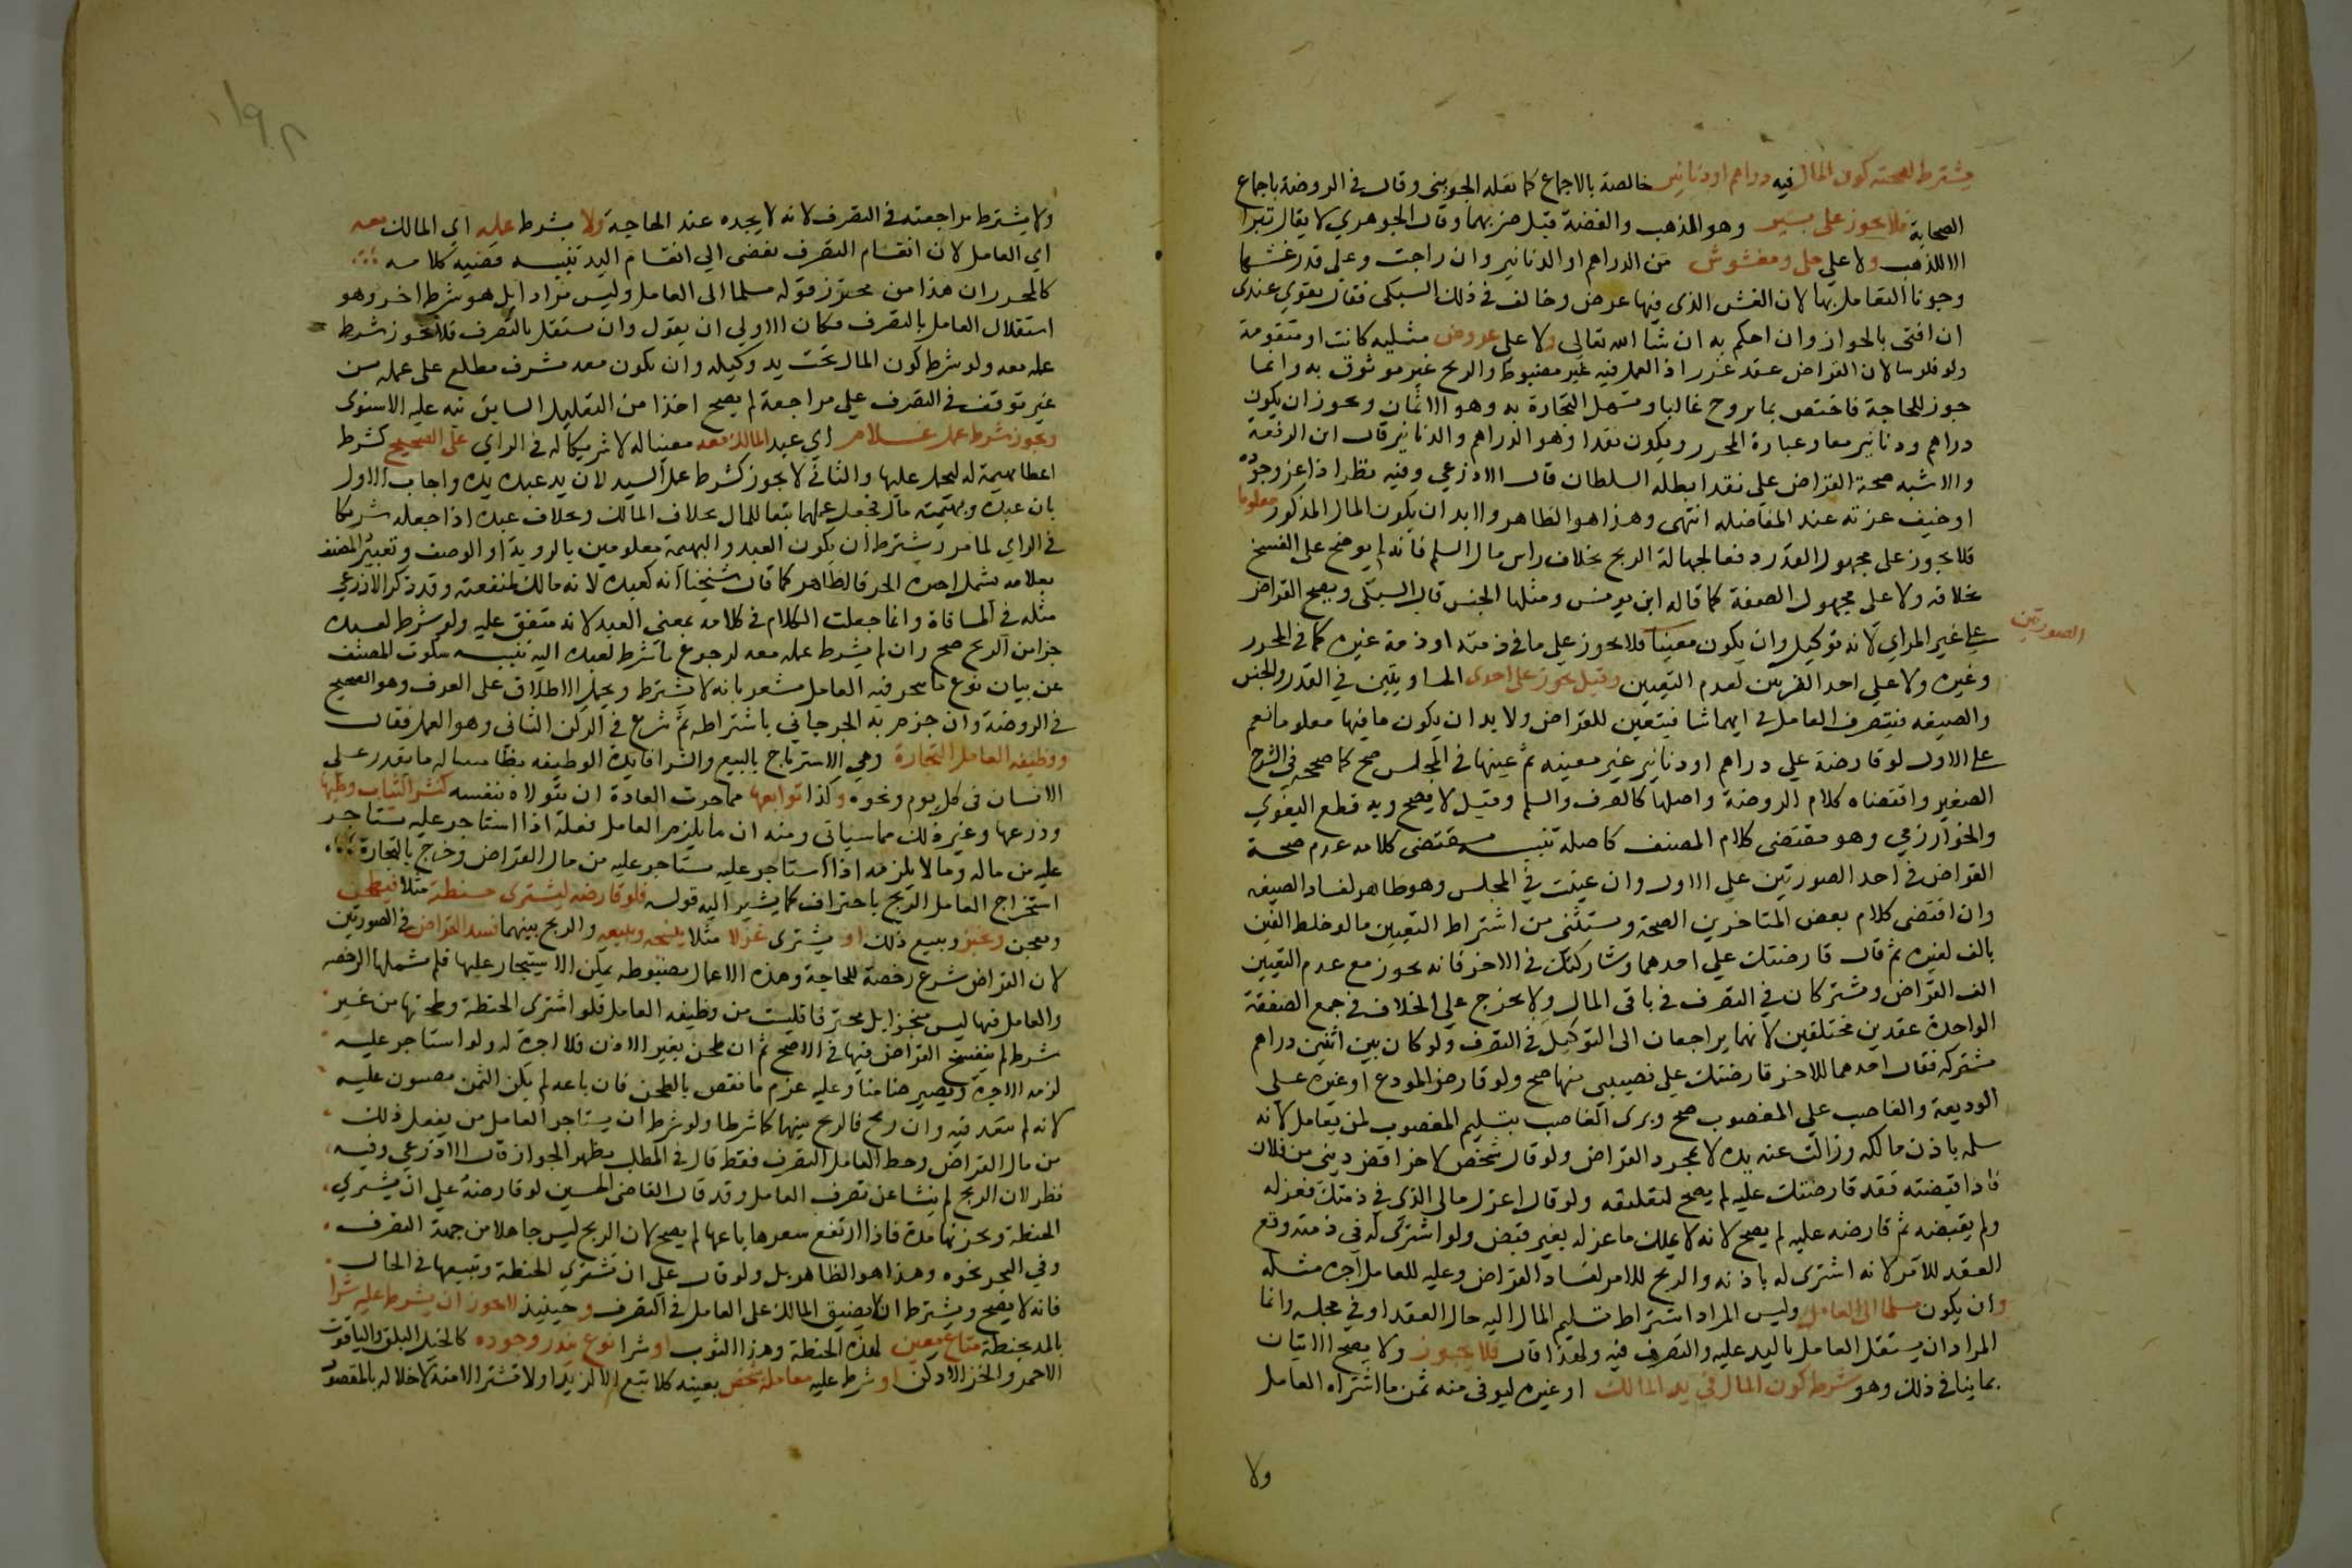 يشترط لصحته كون المال فيه دراهم او دنانير خالصة بالاجماع كما نقله الجويني وقال في الروضة باجماع
الصحابة فلا يجوز على تبر وهو الذهب والفضة قبل ضربهما وقال الجوهري لا يقال تبرا
الا للذهب ولا على حلي ومغشوش من الدراهم او الدنانير وان راجت وعلم قدر غشها
وجوزنا التعامل بها لان الغش الذي فيها عرض وخالف في ذلك السبكي فقال يقوي عندي
ان افتي بالجواز وان احكم به ان شا الله تعالى ولا على عروض مثلية كانت او متقومة
ولو فلوسا لان القراض عقد غرر اذ العمل فيه غير مضبوط والربح غير موثوق به وانما
جوز للحاجة فاختص بما يروج غالبا وتسهل التجارة به وهو الاثمان ويجوز ان يكون
دراهم ودنانير معا وعبارة المحرر ويكون نقدا وهو الدراهم والدنانير قال ابن الرفعة
والاشبه صحة القراض على نقد ابطله السلطان قال الاذرعي وفيه نظر اذا عز وجوده
او خيف عزته عند المفاضله انتهى وهذا هو الظاهر ولا بد ان يكون المال المذكور معلوما
فلا يجوز على مجهول القدر دفعا لجهالة الربح بخلاف راس مال السلم فانه لم يوضع على الفسخ
بخلافه ولا على مجهول الصفة كما قاله ابن يونس ومثلها الجنس قال السبكي ويصح القراض
على غير المراي لانه توكيل وان يكون معينا فلا يجوز على ما في ذمته او ذمة غيره كما في المحرر
وغيره ولا على احد الصرتين لعدم التعيين وقيل يجوز على احدى المتساويتين في القدر والجنس
الصورتين
والصيغه فيتصرف العامل في ايهما شا فيتعين للقراض ولا بد ان يكون ما فيها معلوما نعم
على الاول لو قارضه على دراهم او دنانير غير معينه ثم عينها في المجلس صح كما صححه في الشرح
الصغير واقتضاه كلام الروضة واصلها كالصرف والسلم وقيل لا يصح وبه قطع البغوي
والخوارزمي وهو مقتضى كلام المصنف كاصله تنبيه مقتضى كلامه عدم صحة
القراض في احد الصورتين على الاول وان عينت في المجلس وهو ظاهر لفساد الصيغه
وان اقتضى كلام بعض المتاخرين الصحة ويستثنى من اشتراط التعيين ما لو خلط الفين
بالف لغيره ثم قال قارضتك على احدهما وشاركتك في الاخر فانه يجوز مع عدم التعيين
الف القراض ويشتركان في التصرف في باقي المال ولا يخرج على الخلاف في جمع الصفقة
الواحدة عقدين مختلفين لانهما يراجعان الى التوكيل في التصرف ولو كان بين اثنين دراهم
مشتركه فقال احدهما للاخر قارضتك على نصيبي منها صح ولو قارض المودع او غيره على
الوديعة والغاصب على المغصوب صح وبرى الغاصب بتسليم المغصوب لمن يعامل لانه
سلمه باذن مالكه وزالت عنه يده لا بمجرد القراض ولو قال شخص لاخر اقبض ديني من فلان
فاذا قبضته فقد قارضتك عليه لم يصح لتعليقه ولو قال اعزل مالي الذي في ذمتك فعزله
ولم يقبضه ثم قارضه عليه لم يصح لانه لا يملك ما عزله بغير قبض ولو اشترى له في ذمته وقع
العقد للآمر لانه اشترى له باذنه والربح للامر لفساد القراض وعليه للعامل اجرة مثله
وان يكون مسلما الى العامل وليس المراد اشتراط تسليم المال اليه حال العقد او في مجلسه وانما
المراد ان يستقل العامل باليد عليه والتصرف فيه ولهذا قال فلا يجوز ولا يصح الاتيان
بما ينافي ذلك وهو شرط كون المال في يد المالك او غيره ليوفي منه ثمن ما اشتراه العامل
ولا
ولا يشترط مراجعته في التصرف لانه لا يجده عند الحاجة ولا يشرط عمله اي المالك معه
اي العامل لان انقسام التصرف يفضي الى انقسام اليد تنبيه قضية كلامه
كالمحرر ان هذا من محترز قوله مسلما الى العامل وليس مرادا بل هو شرط اخر وهو
استقلال العامل بالتصرف فكان الاولى ان يقول وان يستقل بالتصرف فلا يجوز شرط
عمله معه ولو شرط كون المال تحت يد وكيله وان يكون معه مشرف مطلع على عمله من
غير توقف في التصرف على مراجعة لم يصح اخذا من التعليل السابق نبه عليه الاسنوي
ويجوز شرط عمل غلام اي عبد المالك معه معينا له لا شريكا له في الراي على الصحيح كشرط
اعطا بهيمة له ليحمل عليها والثاني لا يجوز كشرط عمل السيد لان يد عبده يده واجاب الاول
بان عبده وبهيمته مال فجعل عملهما تبعا للمال بخلاف المالك وبخلاف عبده اذا جعله شريكا
في الراي لما مر ويشترط ان يكون العبد والبهيمة معلومين بالروية او الوصف وتعبير المصنف
بغلامه يشمل اجيره الحر فالظاهر كما قال شيخنا انه كعبده لانه مالك لمنفعته وقد ذكر الاذرعي
مثله في المساقاة وانما جعلت الكلام في كلامه بمعنى العبد لانه متفق عليه ولو شرط لعبده
جزا من الربح صح وان لم يشرط عمله معه لرجوع ما شرط لعبده اليه تنبيه سكوت المصنف
عن بيان نوع ما يتجر فيه العامل مشعر بانه لا يشترط ويحمل الاطلاق على العرف وهو الصحيح
في الروضة وان جزم به الجرجاني باشتراطه ثم شرع في الركن الثاني وهو العمل فقال
ووظيفه العامل التجارة وهي الاسترباح بالبيع والشرا فايدة الوظيفه بظا مساله ما يقدر على
الانسان في كل يوم ونحوه وكذا توابعها مما جرت العادة ان يتولاه بنفسه كنشر الثياب وطيها
وذرعها وغير ذلك مما سياتي ومنه ان ما يلزم العامل فعله اذا استاجر عليه يستاجر
عليه من ماله وما لا يلزمه اذا استاجر عليه يستاجر عليه من مال القراض وخرج بالتجارة
استخراج العامل الربح باحتراف كما يشير اليه قوله فلو قارضه ليشترى حنطة مثلا فيطحن
ويعجن ويخبز ويبيع ذلك او يشترى غزلا مثلا ينسجه ويبيعه والربح بينهما فسد القراض في الصورتين
لان القراض شرع رخصة للحاجة وهذه الاعمال مضبوطه يمكن الاستيجار عليها فلم تشملها الرخصه
والعامل فيها ليس متجرا بل محترفا فليست من وظيفه العامل فلو اشترى الحنطة وطحنها من غير
شرط لم ينفسخ القراض فيها في الاصح ثم ان طحن بغير الاذن فلا اجرة له ولو استاجر عليه
لزمه الاجرة ويصير ضامنا وعليه غرم ما نقص بالطحن فان باعه لم يكن الثمن مضمون عليه
لانه لم يتعد فيه وان ربح فالربح بينهما كما شرطا ولو شرط ان يستاجر العامل من يفعل ذلك
من مال القراض وحظ العامل التصرف فقط قال في المطلب يظهر الجواز قال الاذرعي وفيه
نظر لان الربح لم ينشا عن تصرف العامل وقد قال القاضي الحسين لو قارضه على ان يشتري
الحنطة ويخزنها مدة فاذا ارتفع سعرها باعها لم يصح لان الربح ليس حاصلا من جهة التصرف
وفي البحر نحوه وهذا هو الظاهر بل ولو قال على ان تشتري الحنطة وتبيعها في الحال
فانه لا يصح ويشترط ان لا يضيق المالك على العامل في التصرف وحينيذ لا يجوز ان يشرط عليه شرا
بالمد بحنطة متاع معين لهذه الحنطة وهذا الثوب او شرا نوع يندر وجوده كالخيل البلق والياقوت
الاحمر والخز الادكن او شرط عليه معاملة شخص بعينه كلا تبع الا لزيد او لا تشتر الا منه لاخلاله بالمقصود